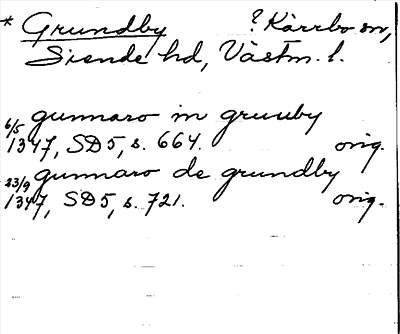 * Grundby ? Kärrbo sn,
Siende hd, Västm. l.
6/5 gunnaro in gruuby
1347, SD5, s. 664. orig.
23/9 gunnaro de grundby
1347, SD5, s. 721. orig.